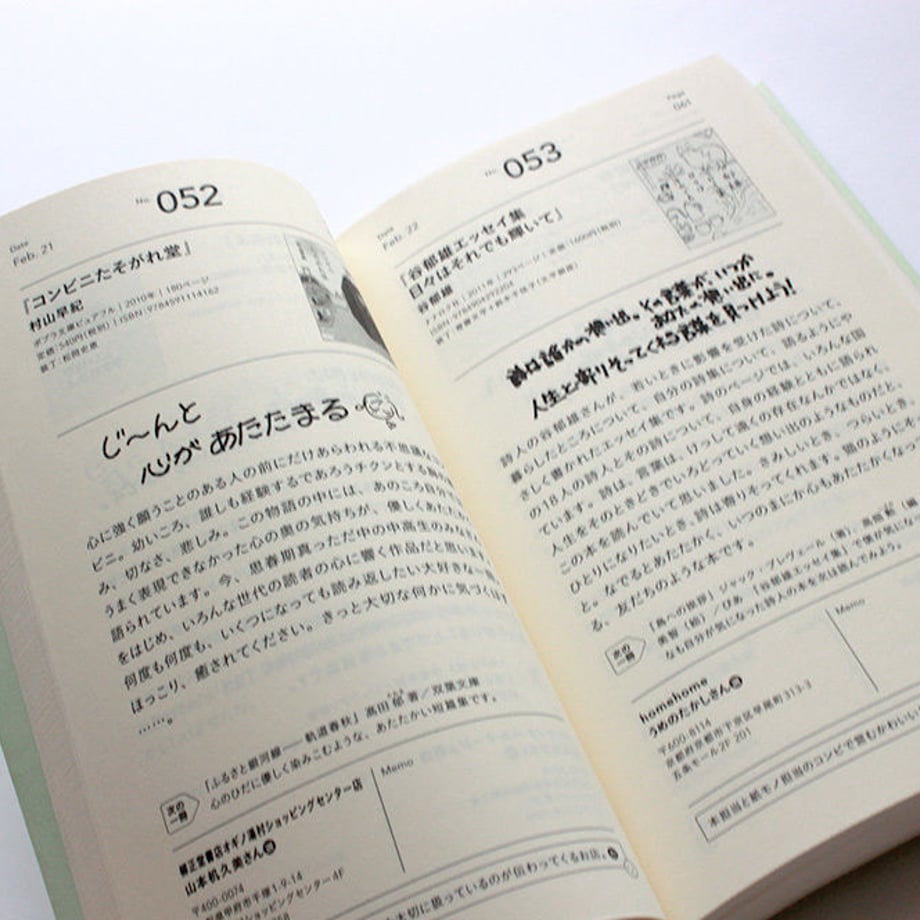 Date
Feb. 21
No. 052
『コンビニたそがれ堂』
村山早紀
ポプラ文庫ピュアフル｜2010年｜180ページ
定価：540円（税別）｜ISBN：9784591114162
装丁：松岡史恵
じ〜んと
心が あたたまる
心に強く願うことのある人の前にだけあらわれる不思議な
ビニ。幼いころ、誰しも経験するであろうチクンとする
み、切なさ、悲しみ。この物語の中には、あのころ自分
うまく表現できなかった心の奥の気持ちが、優しくあた
語られています。今、思春期真っただ中の中高生のみな
をはじめ、いろんな世代の読者の心に響く作品だと思いま
何度も何度も、いくつになっても読み返したい大好きな
ほっこり、癒されてください。きっと大切な何かに気づくは
……。
次の一冊
『ふるさと銀河線── 軌道春秋』髙田郁 著／双葉文庫
心のひだに優しく染みこむような、あたたかい短篇集です。
Memo
山本机久美さん
〒400-0074
甲府市千塚1-9-14
ショッピングセンター 4F
大切に扱っているのが伝わってくるお店。
Page
061
Date
Feb. 22
No. 053
『谷郁雄エッセイ集
日々はそれでも輝いて』
谷郁雄
ナナロク社｜2011年｜293ページ｜定価：1600円（税別）
ISBN：9784904292204
人生と寄りそってくれる言葉を見つけよう！
詩人の谷郁雄さんが、若いときに影響を受けた詩について、
暮らしたところについて、自分の詩集について、語るようにや
さしく書かれたエッセイ集です。詩のページでは、いろんな国
の18人の詩人とその詩について、自身の経験とともに語られ
ています。詩は、言葉は、けっして遠くの存在なんかではなく、
人生をそのときどきでいろどっていく想い出のようなものだと、
この本を読んでいて思いました。さみしいとき、つらいとき、
ひとりになりたいとき、詩は寄りそってくれます。猫のようにそ
と。なでるとあたたかく、いつのまにか心もあたたかくなっ
る、友だちのような本です。
次の一冊
『鳥への挨拶』ジャック・プレヴェール（著）、高畑勲（編
美智（絵）／ぴあ 『谷郁雄エッセイ集』で僕が気にな
なも自分が気になった詩人の本を次は読んでみよう。
Memo
homehome
うめのたかしさん
〒600-8114
京都府京都市下京区早尾町313-3
五条モール2F 201
本担当と紙モノ担当のコンビで営むかわいい